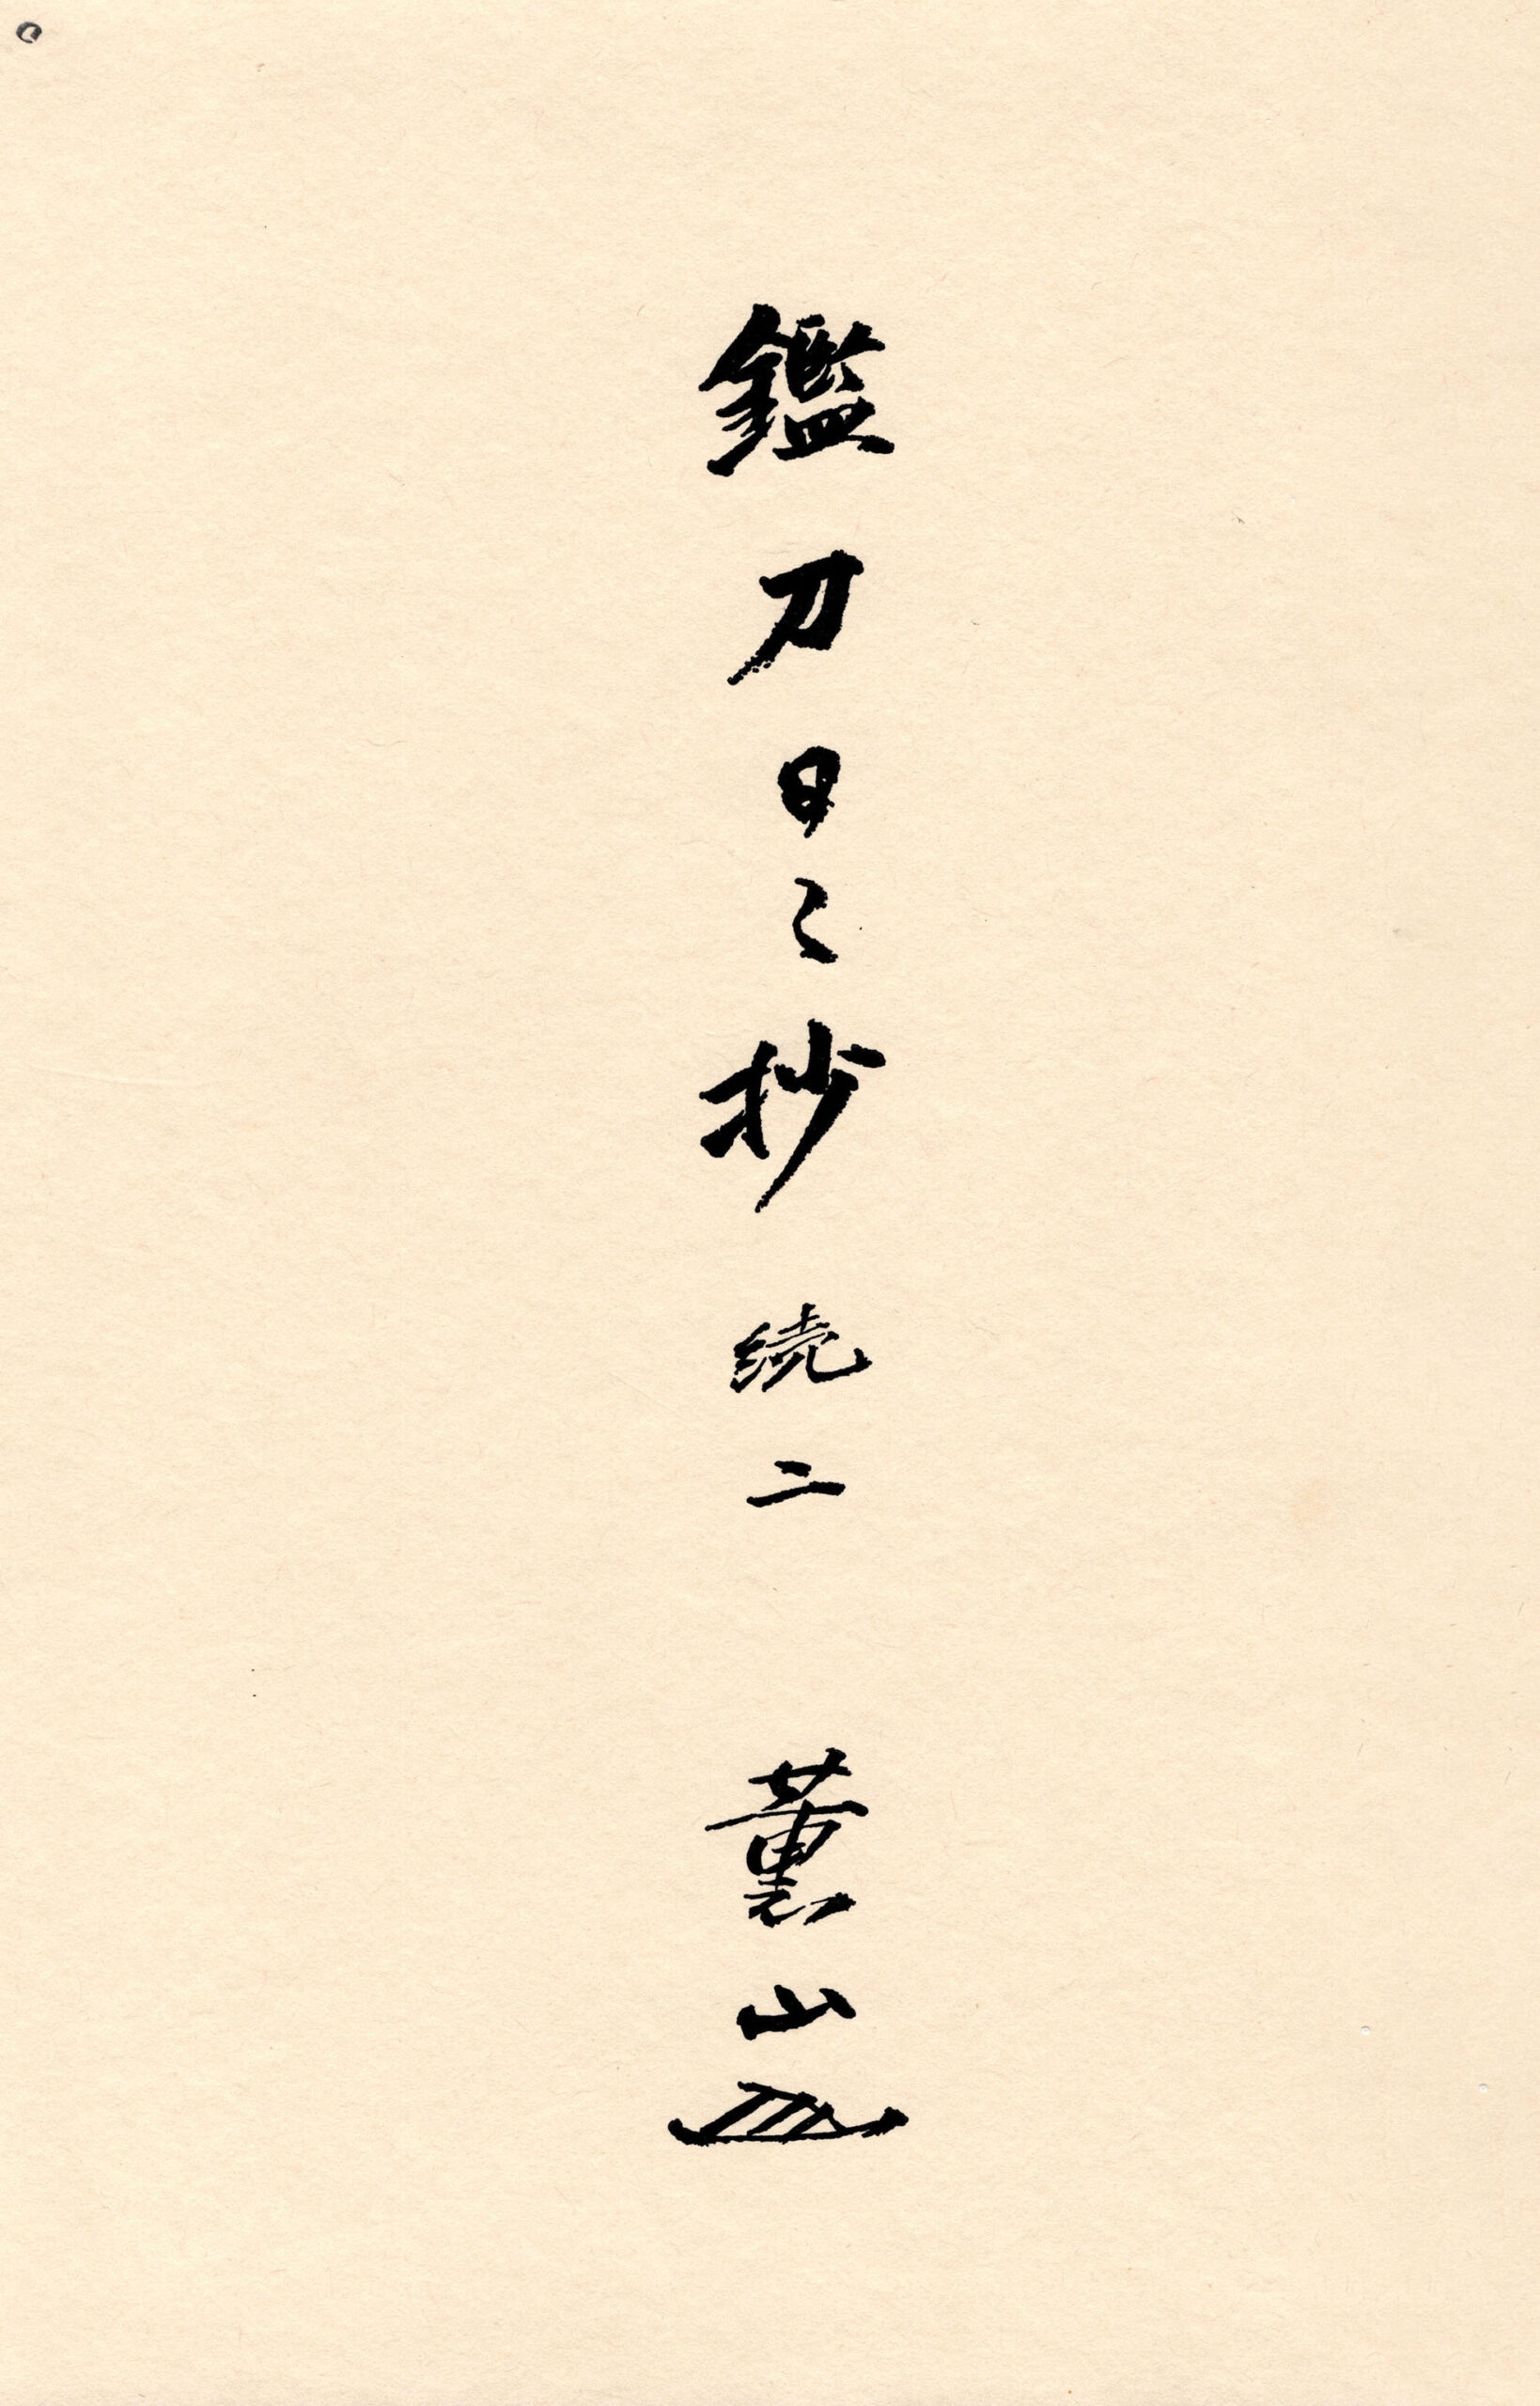 鑑刀日々抄 続二 薫山